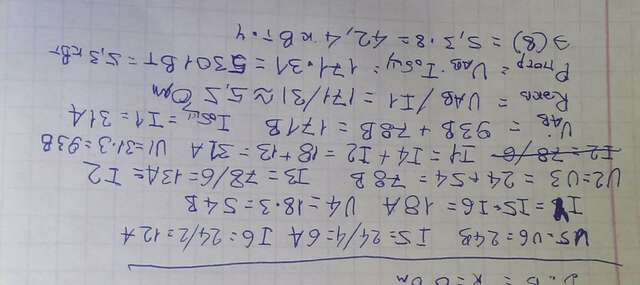 U5=U6=24В I5=24/4=6А I6=24/2=12А
I4=I5+I6=18А U4=18·3=54В
U2=U3=24+54=78В I3=78/6=13А=I2
I2=78/6 I1=I4+I2=18+13=31А U1=31·3=93В
UAB=93В+78В=171В Iобщ=I1=31А
Rэкв=UAB/I1=171/31≈5,5 Ом
Pпотр=UAB·Iобщ=171·31=5301Вт=5,3 кВт
Э(8)=5,3·8=42,4 кВт·ч